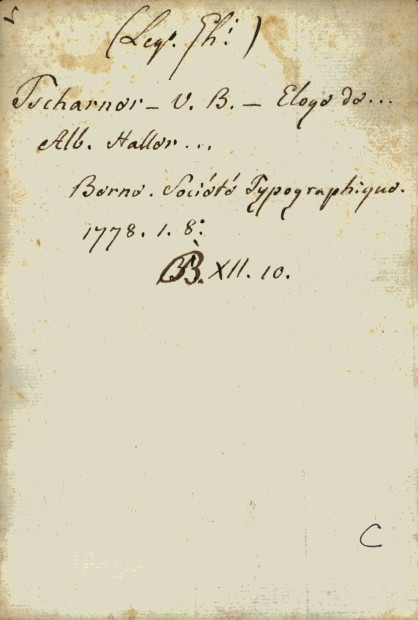 (Leg. Eh:)
Tscharner – V. B. – Eloge de...
Alb. Haller...
Berne. Société Typographique.
1778. 1. 8:
B. XII. 10.
C